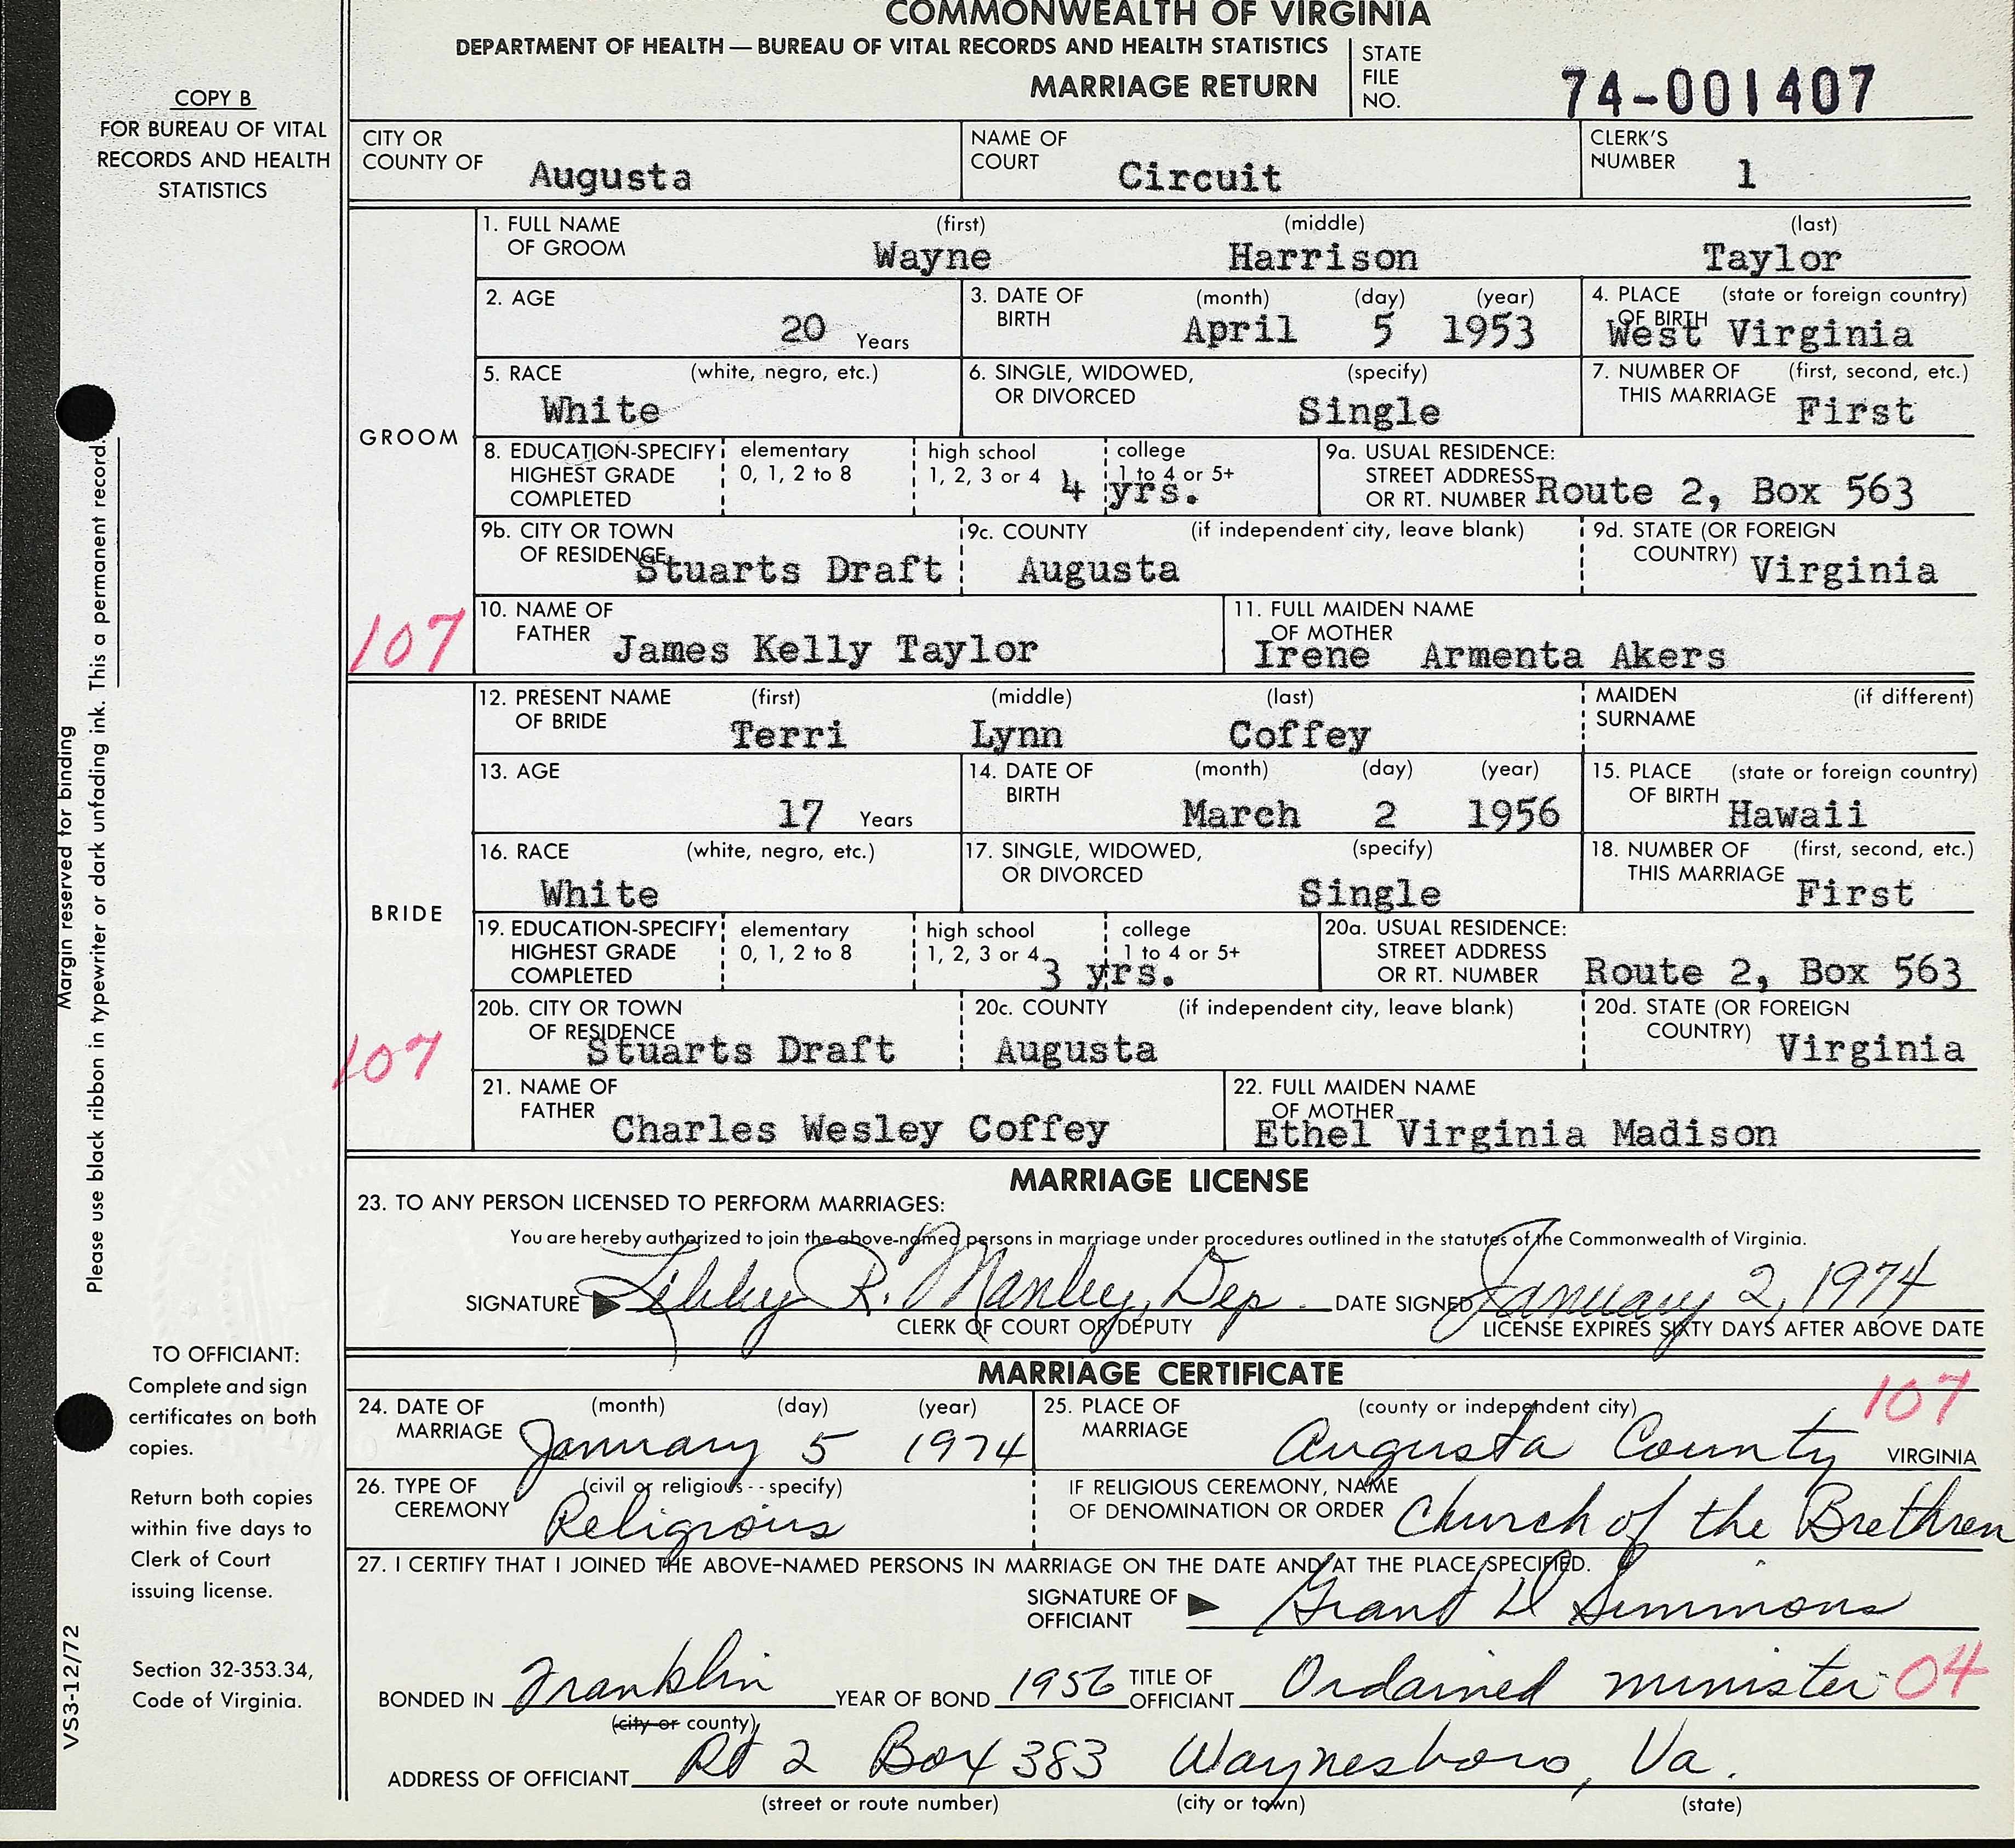 COMMONWEALTH OF VIRGINIA
DEPARTMENT OF HEALTH — BUREAU OF VITAL RECORDS AND HEALTH STATISTICS
MARRIAGE RETURN
STATE FILE NO. 74-001407
COPY B
FOR BUREAU OF VITAL
RECORDS AND HEALTH
STATISTICS
CITY OR COUNTY OF Augusta NAME OF COURT Circuit CLERK'S NUMBER 1
GROOM
1. FULL NAME OF GROOM (first) Wayne (middle) Harrison (last) Taylor
2. AGE 20 Years 3. DATE OF BIRTH (month) April (day) 5 (year) 1953 4. PLACE OF BIRTH (state or foreign country) West Virginia
5. RACE (white, negro, etc.) White 6. SINGLE, WIDOWED, OR DIVORCED (specify) Single 7. NUMBER OF THIS MARRIAGE (first, second, etc.) First
8. EDUCATION-SPECIFY HIGHEST GRADE COMPLETED elementary 0, 1, 2 to 8 high school 1, 2, 3 or 4 college 1 to 4 or 5+ 4 yrs. 9a. USUAL RESIDENCE: STREET ADDRESS OR RT. NUMBER Route 2, Box 563
9b. CITY OR TOWN OF RESIDENCE Stuarts Draft 9c. COUNTY (if independent city, leave blank) Augusta 9d. STATE (OR FOREIGN COUNTRY) Virginia
107
10. NAME OF FATHER James Kelly Taylor 11. FULL MAIDEN NAME OF MOTHER Irene Armenta Akers
BRIDE
12. PRESENT NAME OF BRIDE (first) Terri (middle) Lynn (last) Coffey MAIDEN SURNAME (if different)
13. AGE 17 Years 14. DATE OF BIRTH (month) March (day) 2 (year) 1956 15. PLACE OF BIRTH (state or foreign country) Hawaii
16. RACE (white, negro, etc.) White 17. SINGLE, WIDOWED, OR DIVORCED (specify) Single 18. NUMBER OF THIS MARRIAGE (first, second, etc.) First
19. EDUCATION-SPECIFY HIGHEST GRADE COMPLETED elementary 0, 1, 2 to 8 high school 1, 2, 3 or 4 college 1 to 4 or 5+ 3 yrs. 20a. USUAL RESIDENCE: STREET ADDRESS OR RT. NUMBER Route 2, Box 563
20b. CITY OR TOWN OF RESIDENCE Stuarts Draft 20c. COUNTY (if independent city, leave blank) Augusta 20d. STATE (OR FOREIGN COUNTRY) Virginia
107
21. NAME OF FATHER Charles Wesley Coffey 22. FULL MAIDEN NAME OF MOTHER Ethel Virginia Madison
MARRIAGE LICENSE
23. TO ANY PERSON LICENSED TO PERFORM MARRIAGES:
You are hereby authorized to join the above-named persons in marriage under procedures outlined in the statutes of the Commonwealth of Virginia.
SIGNATURE Libby R. Manley, Dep. DATE SIGNED January 2, 1974
CLERK OF COURT OR DEPUTY LICENSE EXPIRES SIXTY DAYS AFTER ABOVE DATE
MARRIAGE CERTIFICATE
107
24. DATE OF MARRIAGE (month) January (day) 5 (year) 1974 25. PLACE OF MARRIAGE (county or independent city) Augusta County VIRGINIA
26. TYPE OF CEREMONY (civil or religious -- specify) Religious IF RELIGIOUS CEREMONY, NAME OF DENOMINATION OR ORDER Church of the Brethren
27. I CERTIFY THAT I JOINED THE ABOVE-NAMED PERSONS IN MARRIAGE ON THE DATE AND AT THE PLACE SPECIFIED.
SIGNATURE OF OFFICIANT Grant D Simmons
BONDED IN Franklin YEAR OF BOND 1956 TITLE OF OFFICIANT Ordained minister 04
(city or county)
ADDRESS OF OFFICIANT Rt 2 Box 383 Waynesboro, Va.
(street or route number) (city or town) (state)
Margin reserved for binding
Please use black ribbon in typewriter or dark unfading ink. This a permanent record.
TO OFFICIANT:
Complete and sign
certificates on both
copies.
Return both copies
within five days to
Clerk of Court
issuing license.
Section 32-353.34,
Code of Virginia.
VS3-12/72